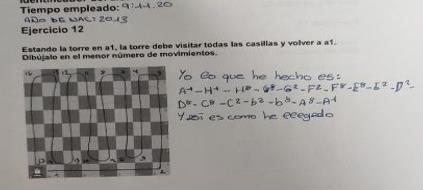 Tiempo empleado: 9:44.20
AÑO DE NAC: 2013
Ejercicio 12
Estando la torre en a1, la torre debe visitar todas las casillas y volver a a1.
Dibújalo en el menor número de movimientos.
Yo lo que he hecho es:
A1-H1-H8-G8-G2-F2-F8-E8-E2-D2-
D8-C8-C2-b2-b8-A8-A1
Y así es como he llegado